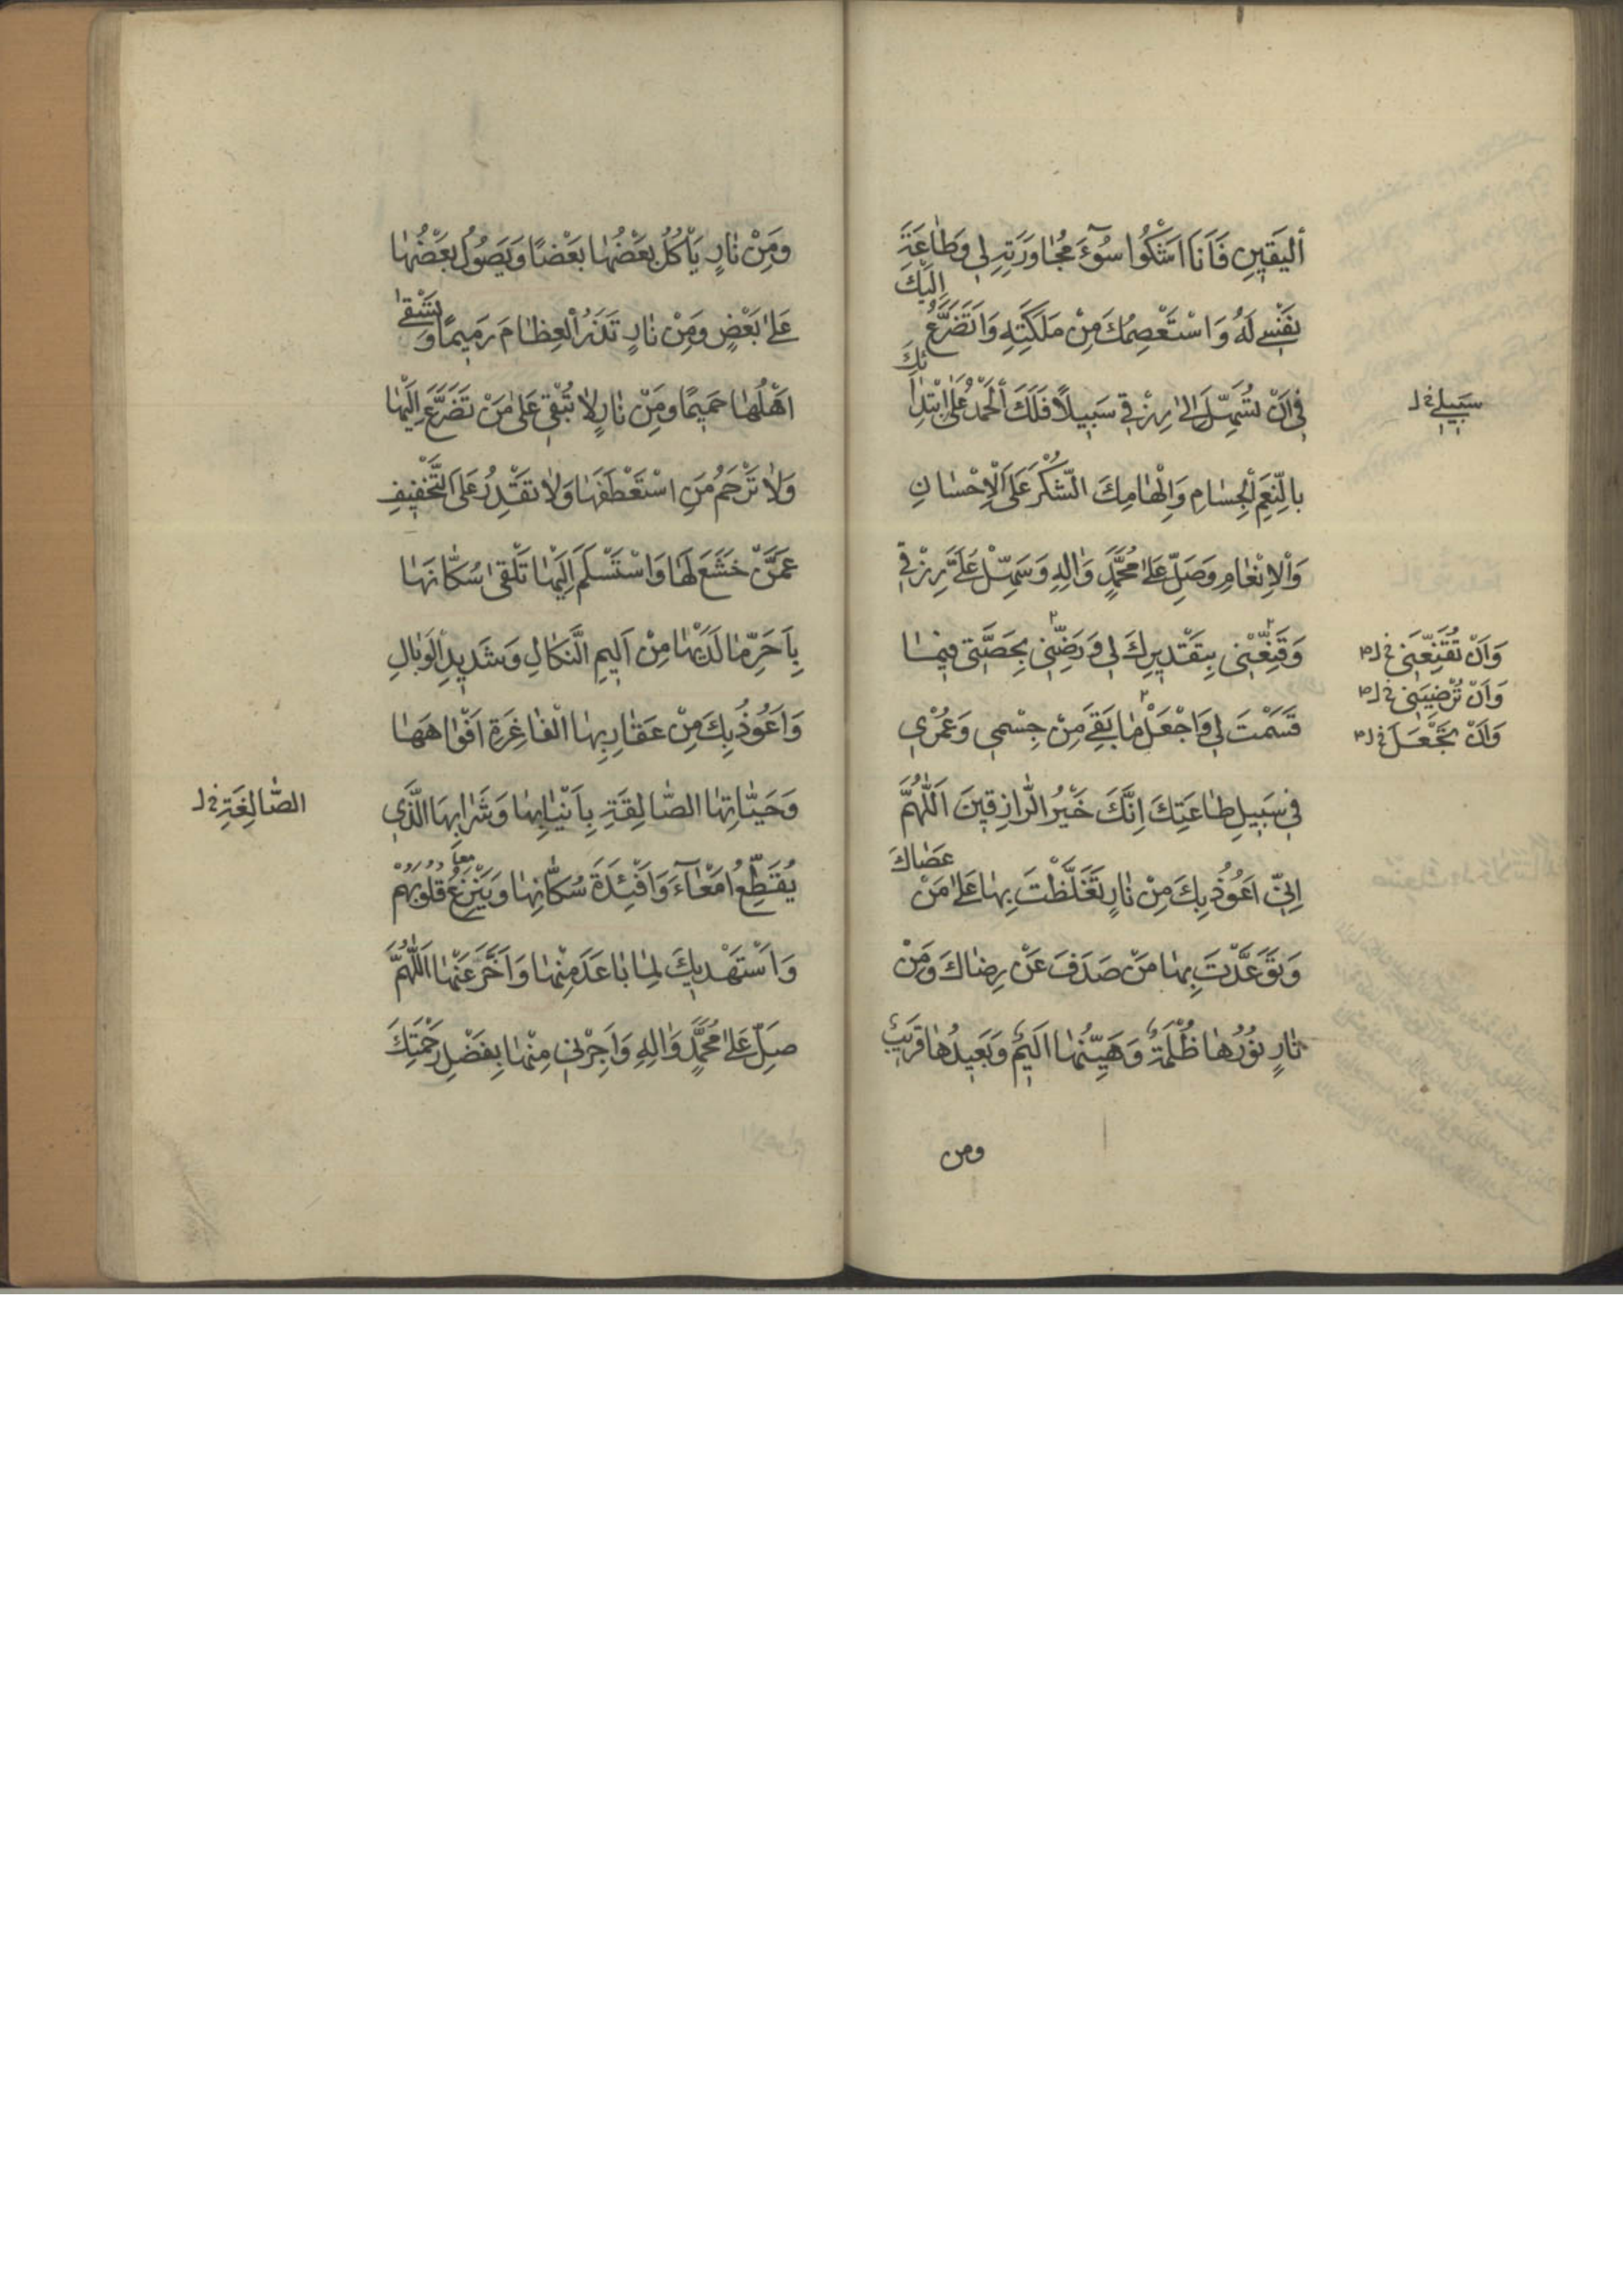 اَلْيَقِينِ فَاَنَا اَشْكُوا سُوۤءَ مُجٰاوَرَتِهِ لِي وَطٰاعَةَ
نَفْسِي لَهُ وَاسْتَعْصِمُكَ مِنْ مَلَكَتِهِ وَاَتَضَرَّعُ اِلَيْكَ
فِي اَنْ تُسَهِّلَ اِلىٰ رِزْقِي سَبِيلاً فَلَكَ الْحَمْدُ عَلَى ابْتِدٰائِكَ
بِالنِّعَمِ الْجِسٰامِ وَاِلْهٰامِكَ الشُّكْرَ عَلَى الْاِحْسٰانِ
وَالْاِنْعٰامِ وَصَلِّ عَلىٰ مُحَمَّدٍ وَاٰلِهِ وَسَهِّلْ عَلَيَّ رِزْقِي
وَقَنِّعْنِي بِتَقْدِيرِكَ لِي وَرَضِّنِي بِحِصَّتِي فِيمٰا
قَسَمْتَ لِي وَاجْعَلْ مٰا بَقِيَ مِنْ جِسْمِي وَعُمْرِي
فِي سَبِيلِ طٰاعَتِكَ اِنَّكَ خَيْرُ الرّٰازِقِينَ اَللّٰهُمَّ
اِنِّي اَعُوذُ بِكَ مِنْ نٰارٍ تَغَلَّظْتَ بِهٰا عَلىٰ مَنْ عَصٰاكَ
وَتَوَعَّدْتَ بِهٰا مَنْ صَدَفَ عَنْ رِضٰاكَ وَمِنْ
نٰارٍ نُورُهٰا ظُلْمَةٌ وَهَيِّنُهٰا اَلِيمٌ وَبَعِيدُهٰا قَرِيبٌ
ومن
سَبِيلِي خ ل
وَاَنْ تُقَنِّعَنِي خ ل
وَاَنْ تُرْضِيَنِي خ ل
وَاَنْ تَجْعَلَ خ ل
وَمِنْ نٰارٍ يَأْكُلُ بَعْضُهٰا بَعْضًا وَيَصُولُ بَعْضُهٰا
عَلىٰ بَعْضٍ وَمِنْ نٰارٍ تَذَرُ الْعِظٰامَ رَمِيمًا وَ
اَهْلَهٰا حَمِيمًا وَمِنْ نٰارٍ لٰا تُبْقِي عَلىٰ مَنْ تَضَرَّعَ اِلَيْهٰا
وَلٰا تَرْحَمُ مَنِ اسْتَعْطَفَهٰا وَلٰا تَقْدِرُ عَلَى التَّخْفِيفِ
عَمَّنْ خَشَعَ لَهٰا وَاسْتَسْلَمَ اِلَيْهٰا تَلْقىٰ سُكّٰانَهٰا
بِاَحَرِّ مٰا لَدَيْهٰا مِنْ اَلِيمِ النَّكٰالِ وَشَدِيدِ الْوَبٰالِ
وَاَعُوذُ بِكَ مِنْ عَقٰارِبِهٰا الْفٰاغِرَةِ اَفْوٰاهَهٰا
وَحَيّٰاتِهٰا الصّٰالِقَةِ بِاَنْيٰابِهٰا وَشَرٰابِهَا الَّذِي
يُقَطِّعُ اَمْعٰاۤءَ وَاَفْئِدَةَ سُكّٰانِهٰا وَيَنْزِعُ قُلُوبَهُمْ
وَاَسْتَهْدِيكَ لِمٰا بٰاعَدَ مِنْهٰا وَاَخَّرَ عَنْهٰا اَللّٰهُمَّ
صَلِّ عَلىٰ مُحَمَّدٍ وَاٰلِهِ وَاَجِرْنِي مِنْهٰا بِفَضْلِ رَحْمَتِكَ
الصّٰالِغَةِ خ ل